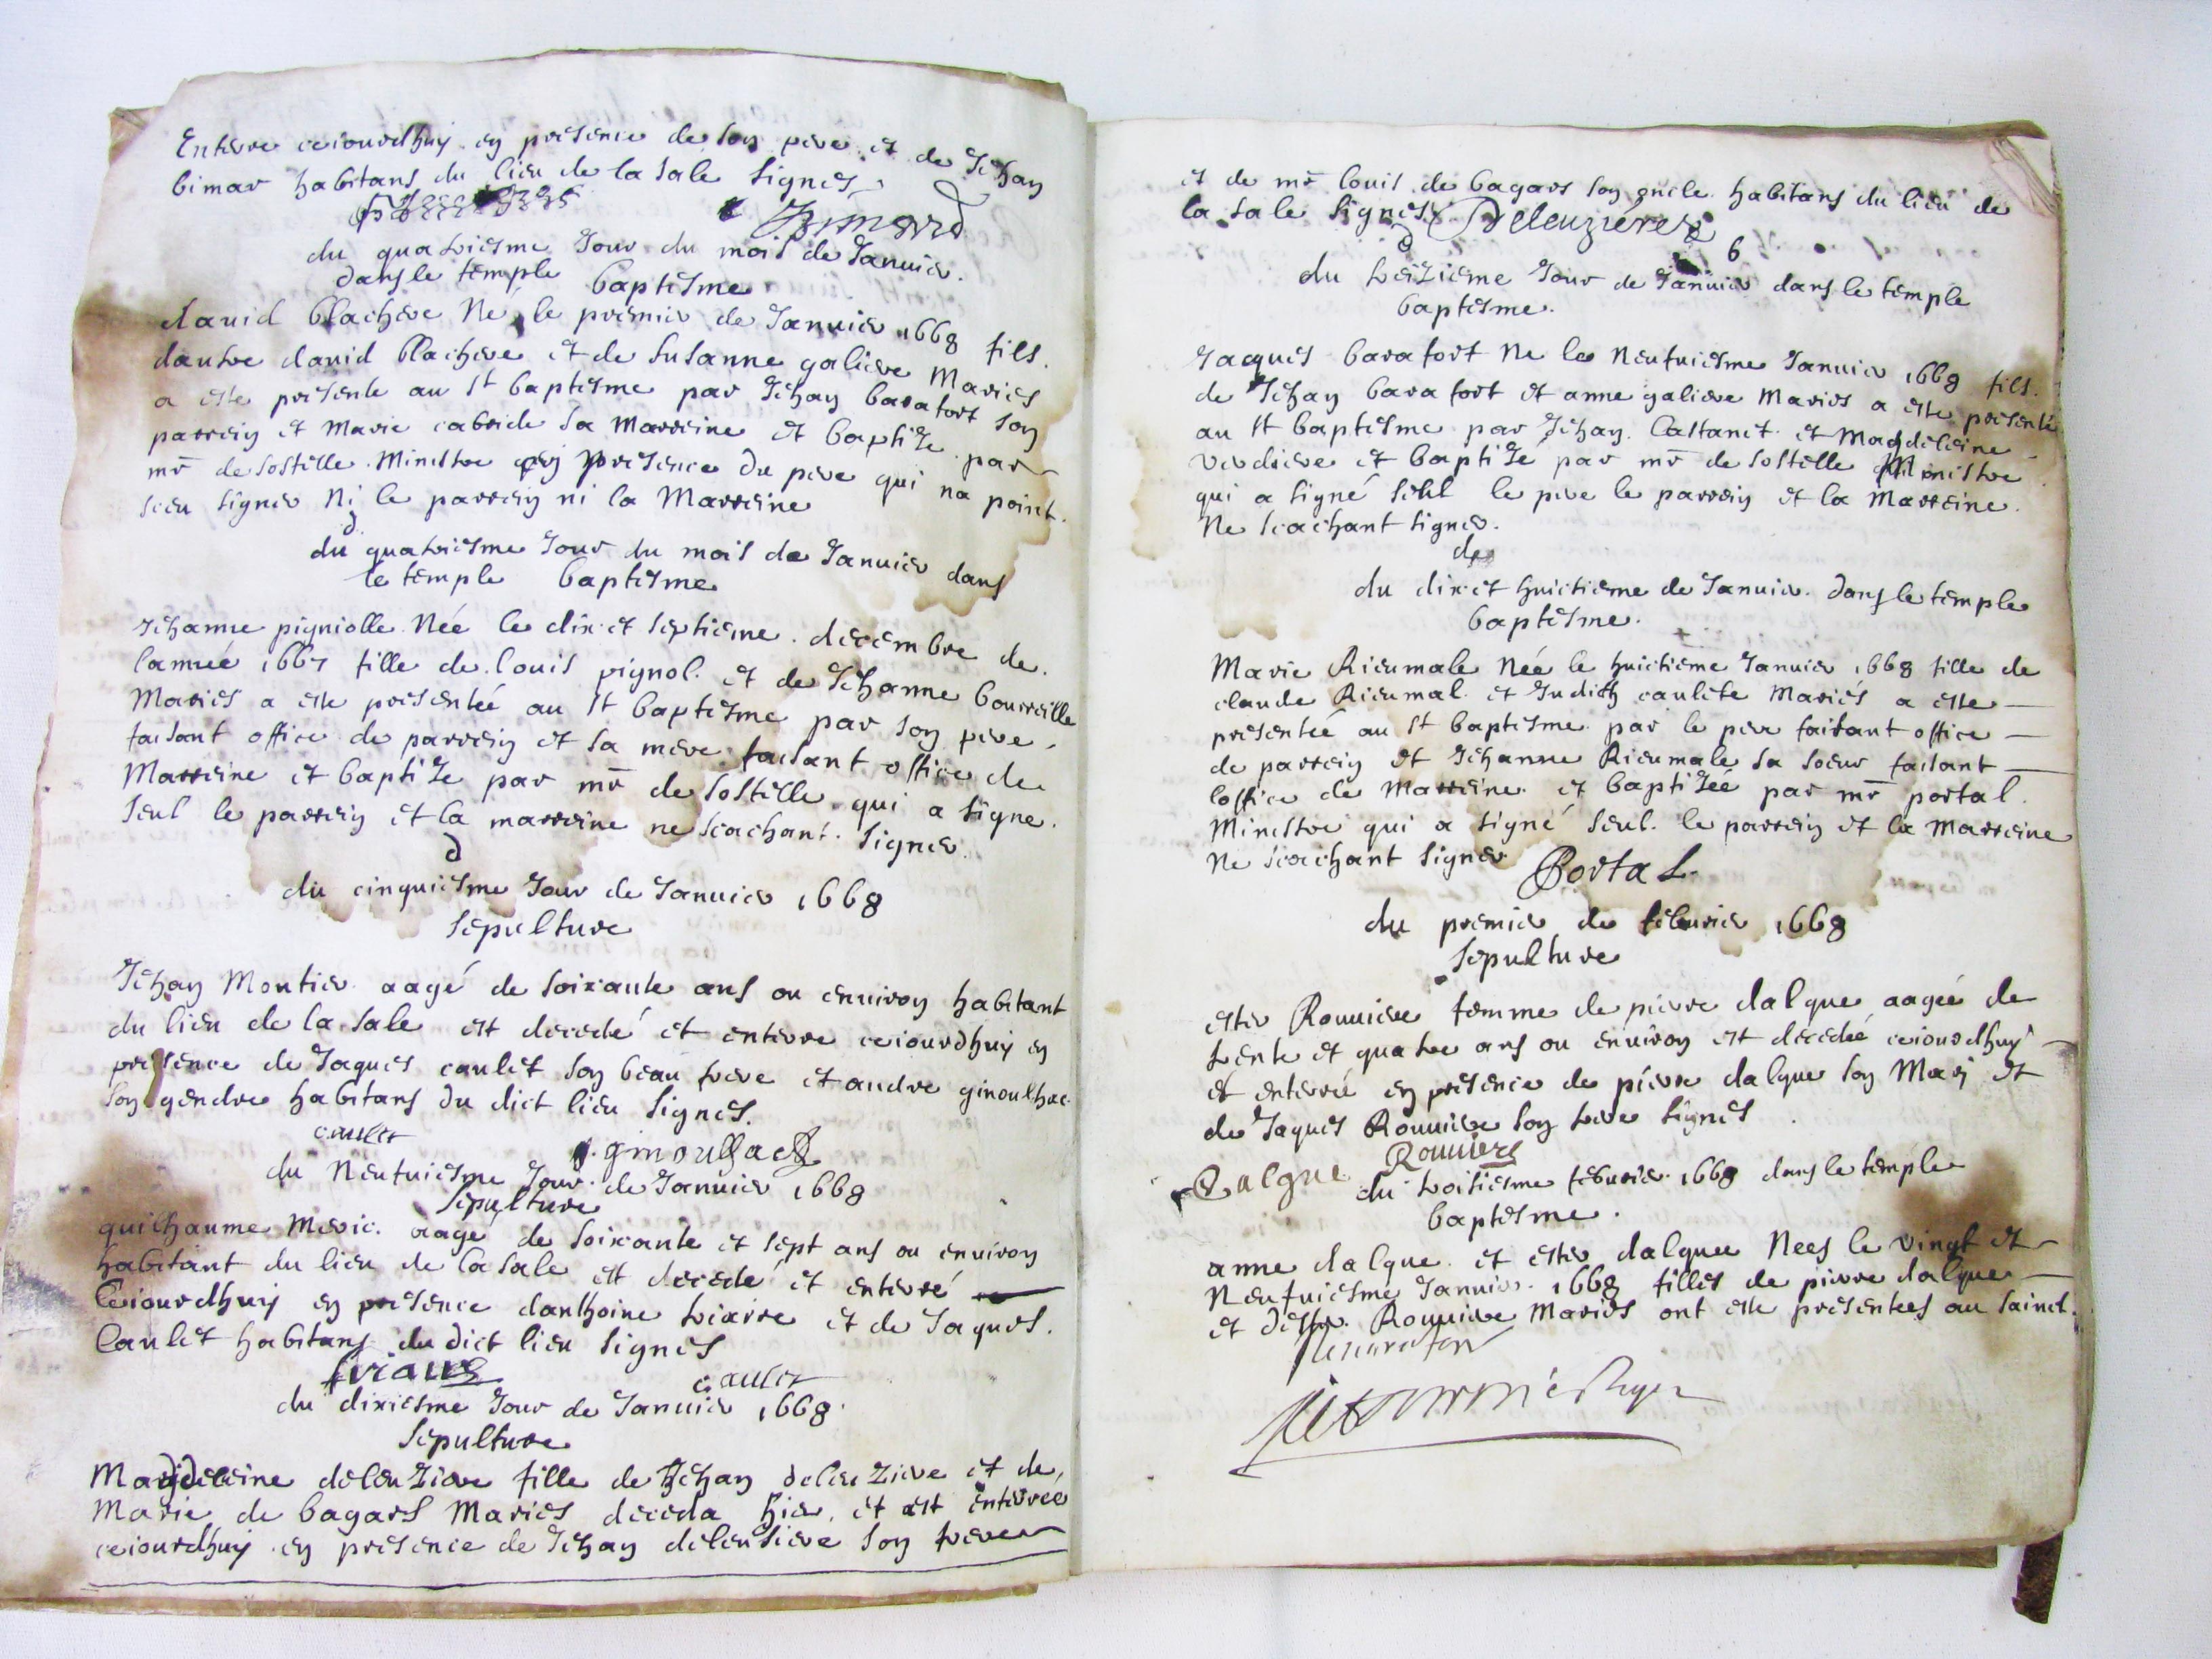 Enterre ceiourdhuy en presence de son pere et de Jehan
bimar habitans du lieu de la sale signes
Bimard
du quatriesme Jour du mois de Januier
dans le temple baptesme
dauid blachere Né le premier de Januier 1668 fils
dautre dauid blachere et de susanne galiere Maries
a este presente au st baptesme par Jehan barafort son
parrein et Marie cabride sa Marreine et baptize par
mr de sostelle Ministre en presence du pere qui na point
sceu signer Ni le parrein ni la Marreine
du quatriesme Jour du mois de Januier dans
le temple baptesme
Jehanne pigniolle Née le dix et septieme decembre de
lannée 1667 fille de louis pignol et de Jehanne bourreille
Mariés a este presentée au st baptesme par son pere
faisant office de parrein et sa mere faisant office de
Marreine et baptize par mr de sostelle qui a signe
seul le parrein et la marreine ne scachant signer
du cinquiesme Jour de Januier 1668
sepulture
Jehan Montier aagé de soixante ans ou enuiron habitant
du lieu de la sale est decedé et enterre ceiourdhuy en
presence de Jaques caulet son beau frere et andre ginoulhac
son gendre habitans du dict lieu signes.
caulet
ginoulhac
du Neufuiesme Jour de Januier 1668
sepulture
guilhaume Meric aagé de soixante et sept ans ou enuiron
habitant du lieu de la sale est decedé et enterré
ceiourdhuy en presence danthoine triaire et de Jaques
Caulet habitans du dict lieu signes
caulet
du dixiesme Jour de Januier 1668
sepulture
Magdeleine deleuziere fille de Jehan deleuziere et de
Marie de bagars Maries deceda hier et est enterrée
ceiourdhuy en presence de Jehan deleusiere son frere
et de mr louis de bagars son oncle habitans du lieu de
la sale signes Deleuzieres
6
du treizieme Jour de Januier dans le temple
baptesme.
Jacques barafort Ne le Neufuiesme Januier 1668 fils
de Jehan barafort et anne galiere Maries a este presenté
au st baptesme par Jehan Castanet et Magdeleine
verdiere et baptizé par mr de sostelle Ministre
qui a signé seul le pere le parrein et la Marreine
Ne scachant signer.
du dix et huictieme de Januier dans le temple
baptesme.
Marie Rieumale Née le huictieme Januier 1668 fille de
claude Rieumal et Judith caulete Mariés a este
presentée au st baptesme par le pere faisant office
de parrein et Jehanne Rieumale sa soeur faisant
loffice de Marreine et baptizée par mr portal
Ministre qui a signé seul le parrein et la Marreine
Ne scachant signer Portal
du premier de feburier 1668
sepulture
ester Rouuiere femme de pierre dalgue aagée de
trente et quatre ans ou enuiron est decedée ceiourdhuy
et enterrée en presence de pierre dalgue son Mari et
de Jaques Rouuiere son frere signes
Rouuiere
Dalgue
du troisiesme feburier 1668 dans le temple
baptesme.
anne dalgue et ester dalgue Nees le vingt et
Neufuiesme Januier 1668 filles de pierre dalgue
et dester Rouuiere Mariés ont este presentees au sainct